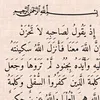 بسم الله الرحمن الرحيم
إذ يقول لصاحبه لا تحزن
إن الله معنا فأنزل الله سكينته
عليه وأيده بجنود لم تروها وجعل
كلمة الذين كفروا السفلى وكلمة